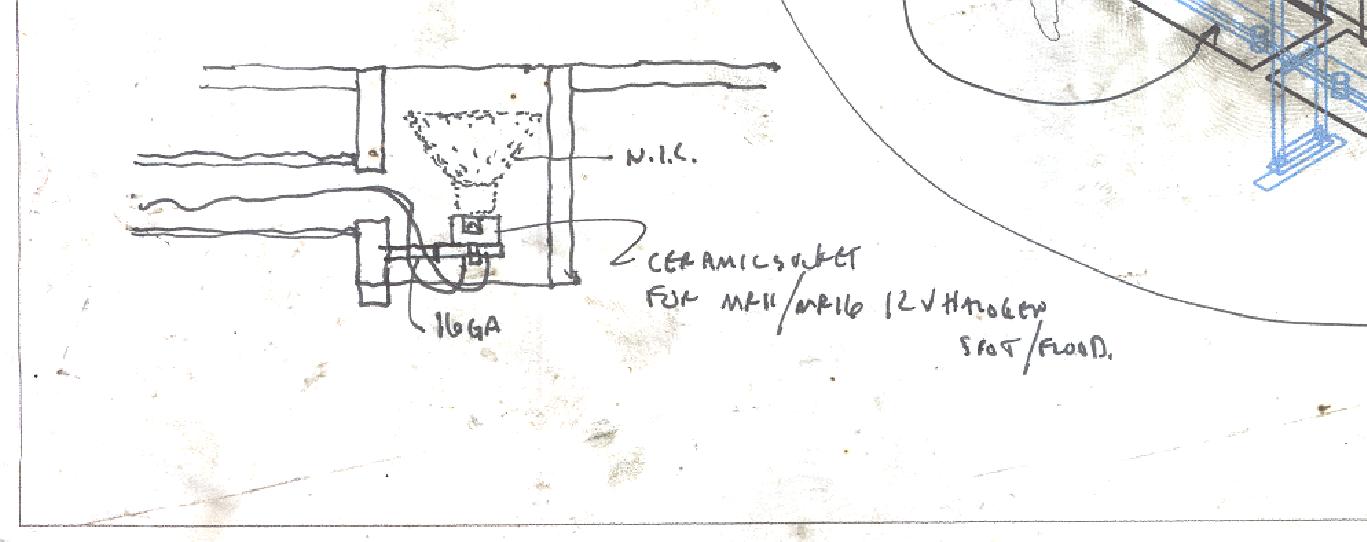 N.I.C.
CERAMIC SOCKET
FOR MR11/MR16 12V HALOGEN
SPOT/FLOOD.
16GA